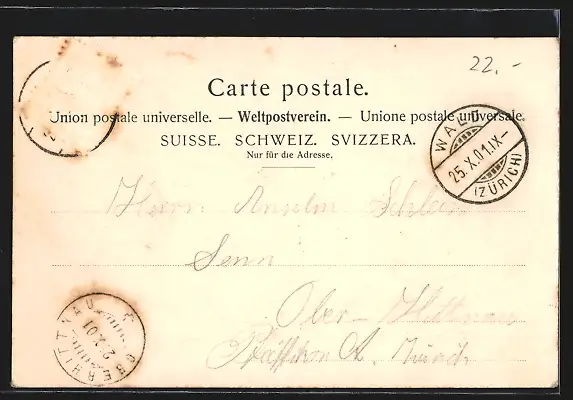 22.-
Carte postale.
Union postale universelle. — Weltpostverein. — Unione postale universale.
SUISSE. SCHWEIZ. SVIZZERA.
Nur für die Adresse.
WALD
25.X.01.IX-
(ZÜRICH)
Herrn Anselm
Senn
Ober-Hittnau
Pfäffikon Kt. Zürich
OBERHITTNAU
X.01